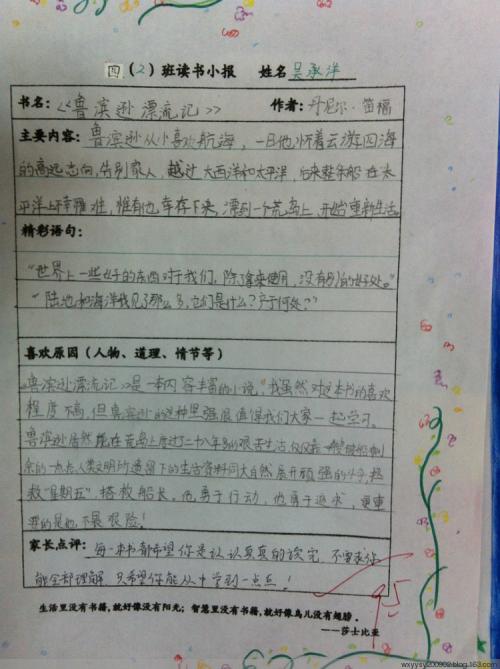 四（2）班读书小报 姓名 吴承洋
书名：《鲁滨逊漂流记》 作者：丹尼尔·笛福
主要内容：鲁滨逊从小喜欢航海，一日他怀着云游四海
的高远志向，告别家人，越过大西洋和太平洋，后来整条船在太
平洋上不幸罹难，惟有他幸存下来，漂到一个荒岛上，开始重新生活。
精彩语句：
“世界上一些好的东西对于我们，除了拿来使用，没有别的好处。”
“陆地和海洋我见了那么多，它们是什么？产于何处？”
喜欢原因（人物、道理、情节等）
《鲁滨逊漂流记》是一本内容丰富的小说，我虽然对这本书的喜欢
程度不高，但鲁滨逊的这种坚强很值得我们大家一起学习。
鲁滨逊居然能在荒岛上度过二十八年多的艰苦生活，仅仅靠一艘破船剩
余的一点点人类文明所遗留下的生活资料同大自然展开顽强的斗争，拯
救“星期五”，拯救船长。他勇于行动，也勇于追求，更重
要的是他不畏艰险！
家长点评：每一本书都希望你是认认真真的读完，不需要你
能全部理解，只希望你能从中学到一点点！
95
生活里没有书籍，就好像没有阳光；智慧里没有书籍，就好像鸟儿没有翅膀。
——莎士比亚
wxyysy200902.blog.163.com